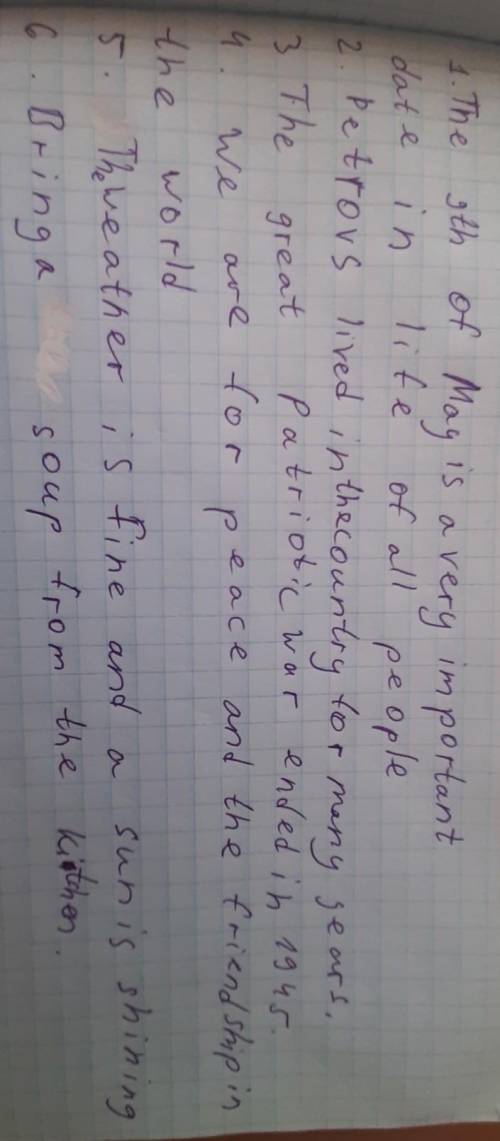 1. The 9th of May is a very important
date in life of all people
2. Petrovs lived in the country for many years.
3 The great patriotic war ended in 1945.
4. We are for peace and the friendship in
the world
5. The weather is fine and a sun is shining
6. Bring a soup from the kitchen.